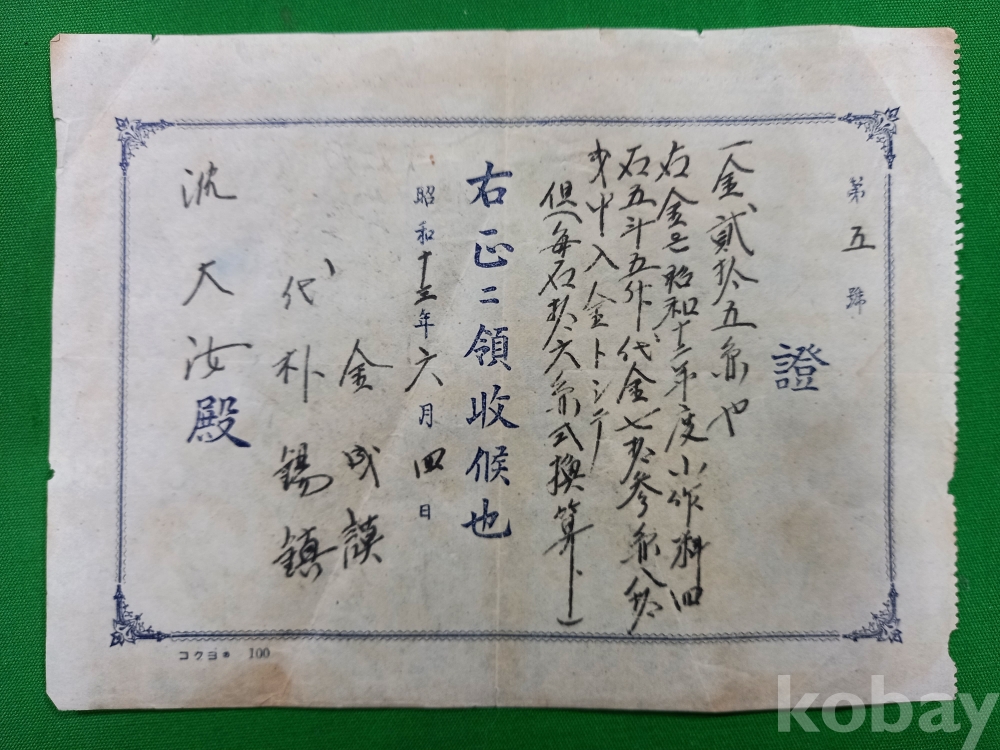 第五號
證
一金貳拾五圓也
右金은昭和十二年度小作料四
石五斗五升代金七拾參圓八拾
中入金トシテ
但(每石拾六圓式換算、)
右正ニ領收候也
昭和十三年六月四日
金成謨
代朴錫鎮
沈大汝殿
コクヨ 100
kobay